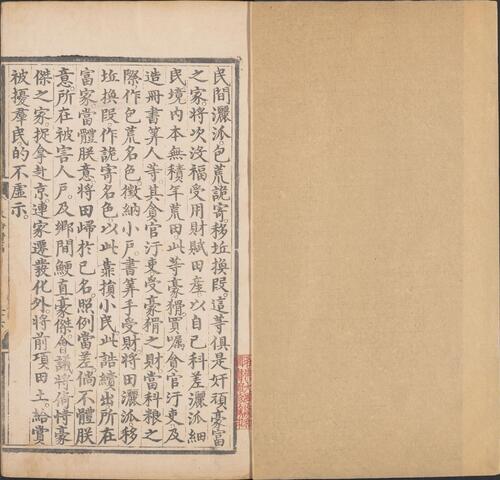 民間灑派包荒詭寄移坵換段這等俱是奸頑豪富
之家將次沒福受用財賦田產以自己科差灑派細
民境內本無積年荒田此等豪猾買囑貪官汙吏及
造冊書筭人等其貪官汙吏受豪猾之財當科粮之
際作包荒名色徵納小戶書筭手受財將田灑派移
坵換段作詭寄名色以此靠損小民此誥續出所在
富家當體朕意將田歸於己名照例當差倘不體朕
意所在被害人戶及鄉間鯁直豪傑會議將倚恃豪
傑之家捉拿赴京連家遷發化外將前項田土給賞
被擾群民的不虛示